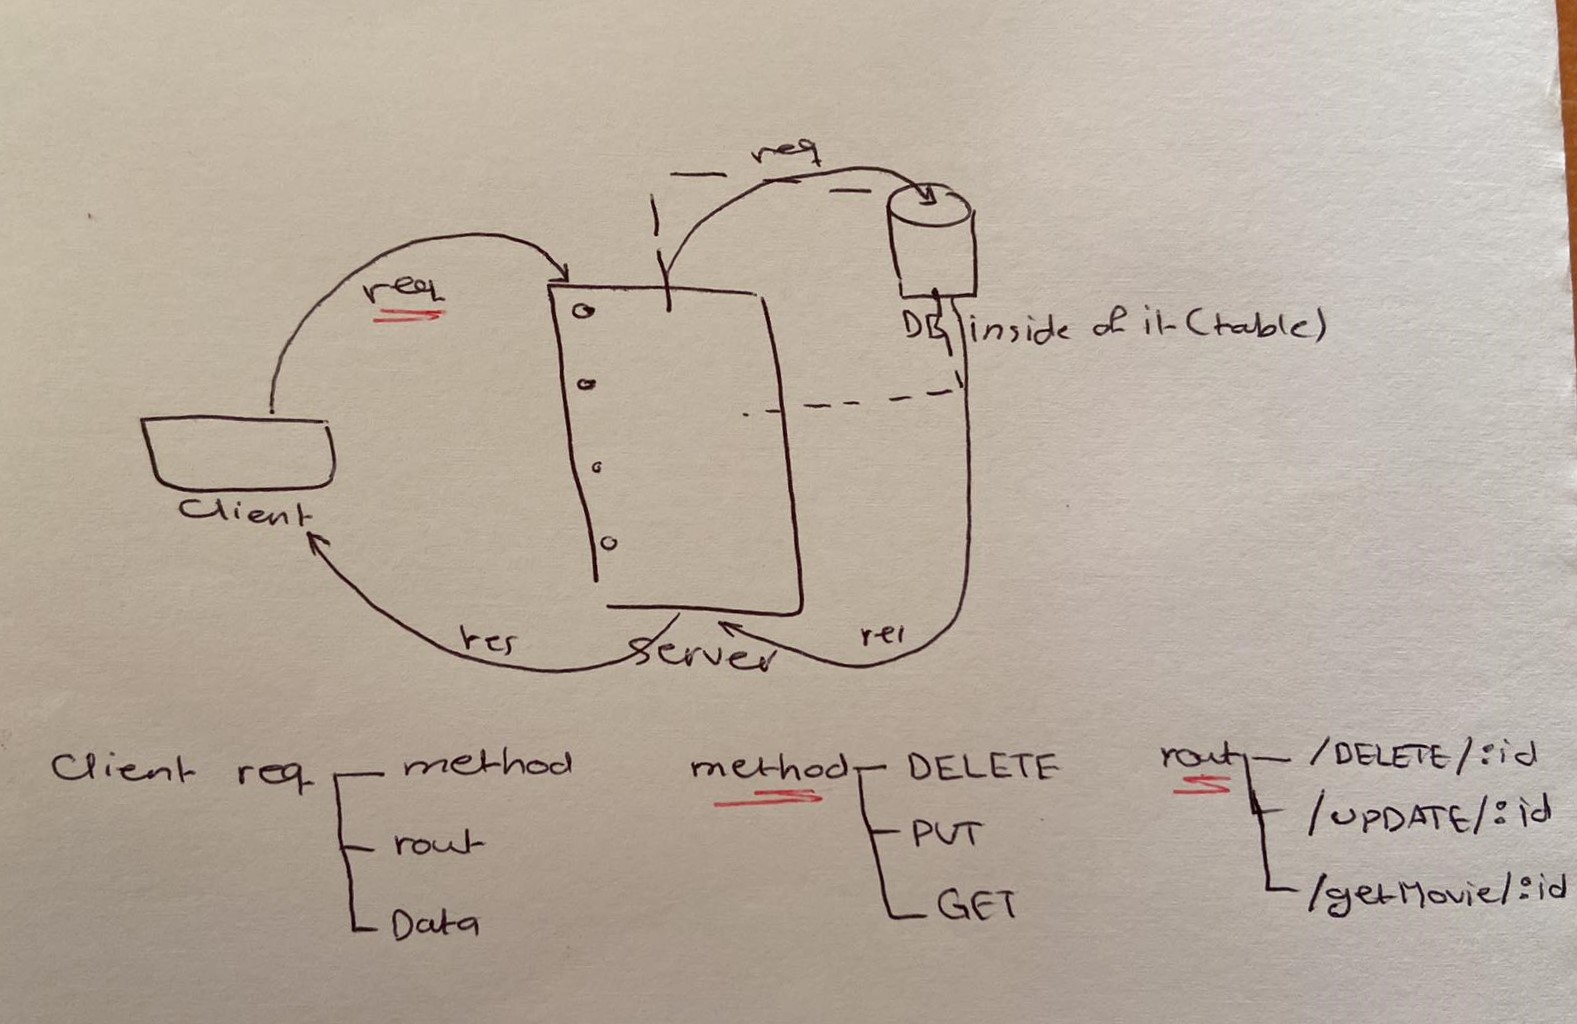 req
req
DB inside of it (table)
Client
res
server
res
Client req method
rout
Data
method DELETE
PUT
GET
rout /DELETE/:id
/UPDATE/:id
/getMovie/:id